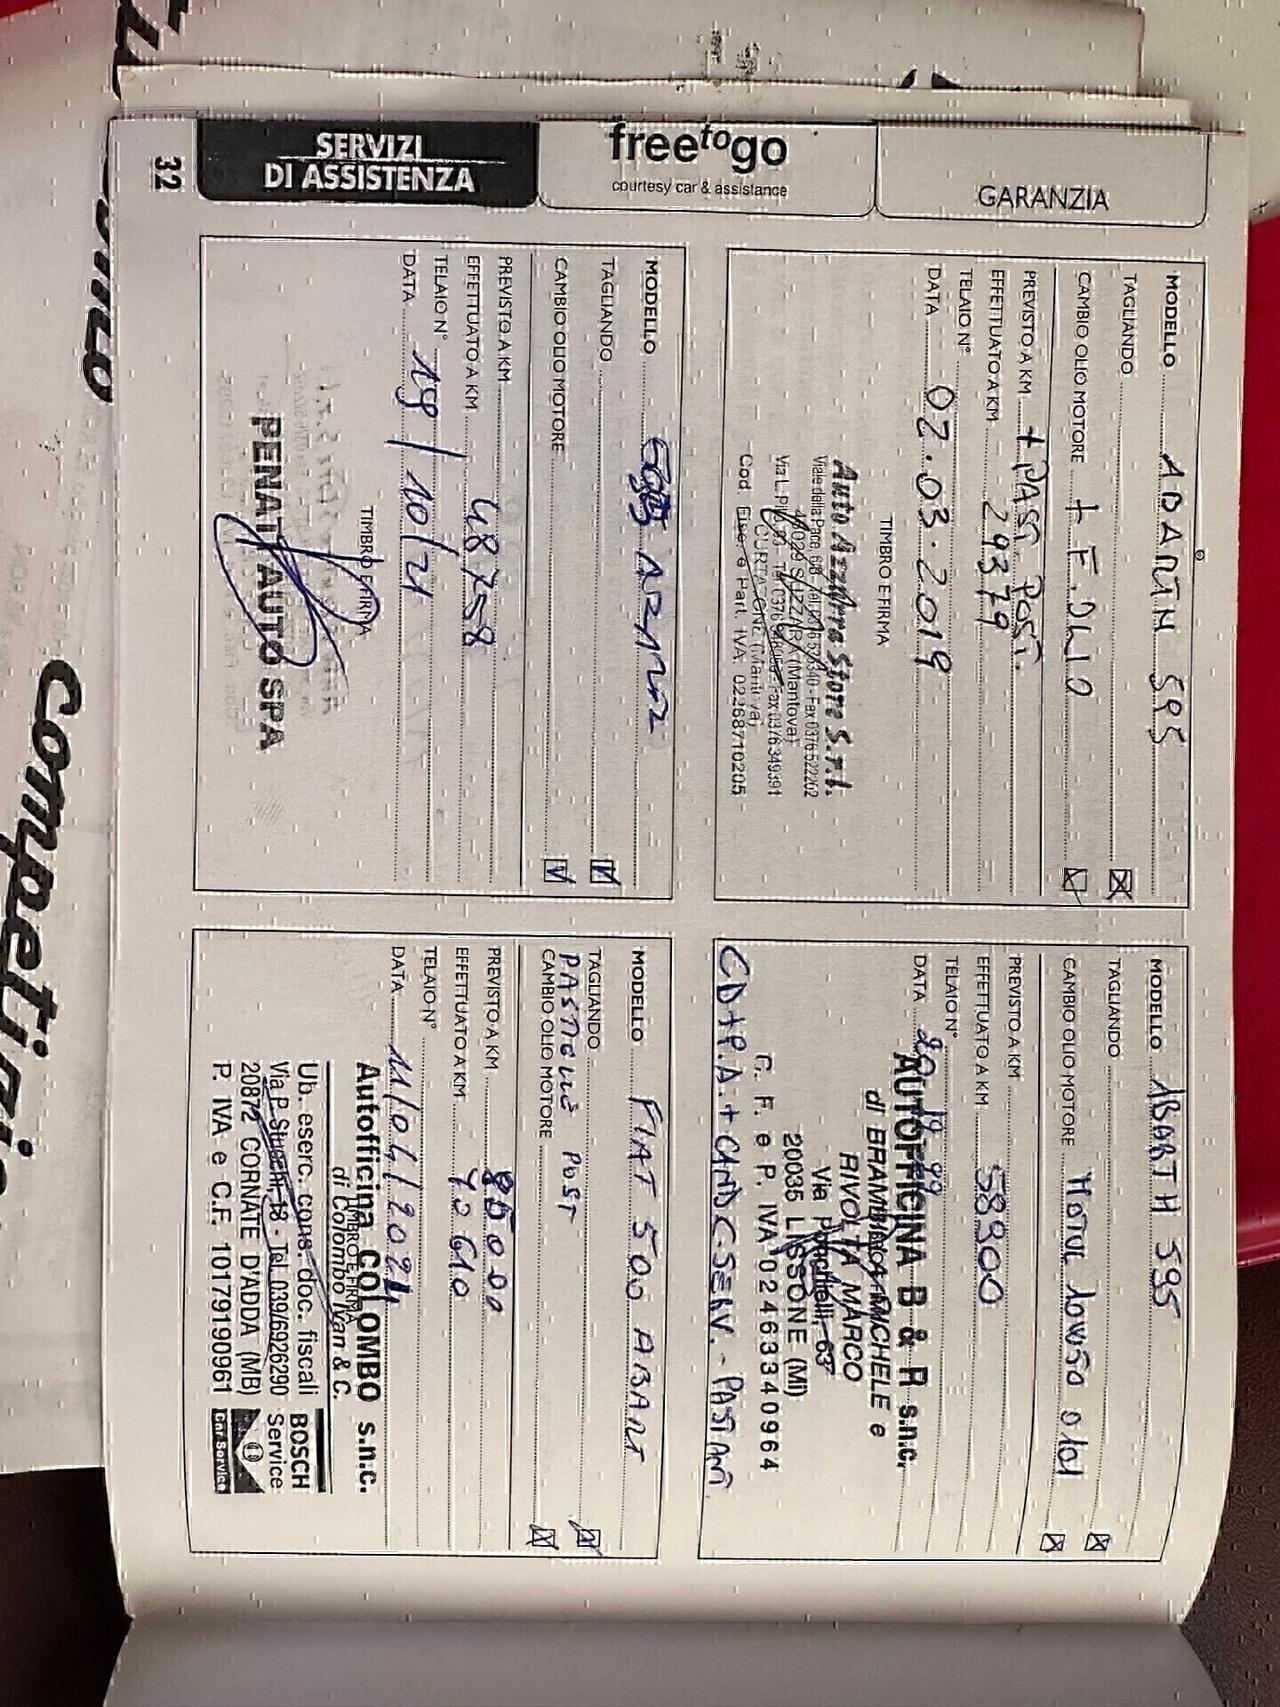 GARANZIA
freetogo
courtesy car & assistance
SERVIZI
DI ASSISTENZA
32
MODELLO ABARTH 595
TAGLIANDO
CAMBIO OLIO MOTORE + F. OLIO
PREVISTO A KM + PAST. POST.
EFFETTUATO A KM 29379
TELAIO N°
DATA 02.03.2019
TIMBRO E FIRMA
Auto Azzurra Store S.r.l.
Viale della Pace, - Fax 0376 522262
46029 SUZZARA (Mantova)
Via L. - Fax 0376 349391
CURTATONE (Mantova)
Cod. Fisc. e Part. IVA 02268710205
MODELLO ABARTH 595
TAGLIANDO
CAMBIO OLIO MOTORE MOTUL 10W50
PREVISTO A KM
EFFETTUATO A KM 58900
TELAIO N°
DATA
AUTOFFICINA B & R s.n.c.
di BRAMBILLA MICHELE e
RIVOLTA MARCO
Via Ponchielli, 63
20035 LISSONE (MI)
C. F. e P. IVA 02463340964
MODELLO 595 ABARTH
TAGLIANDO
CAMBIO OLIO MOTORE
PREVISTO A KM
EFFETTUATO A KM 48758
TELAIO N°
DATA 19/10/21
TIMBRO E FIRMA
PENATI AUTO SPA
MODELLO FIAT 500 ABART
TAGLIANDO
PASTIGLIE POST
CAMBIO OLIO MOTORE
PREVISTO A KM 85000
EFFETTUATO A KM 70610
TELAIO N°
DATA 11/04/2024
TIMBRO E FIRMA
Autofficina COLOMBO s.n.c.
di Colombo Ivan & C.
Ub. eserc. cons. doc. fiscali
Via P. Stucchi 18 - Tel. 039/6926290
20872 CORNATE D'ADDA (MB)
P. IVA e C.F. 10179190961
BOSCH
Service
Car Service
Competizione